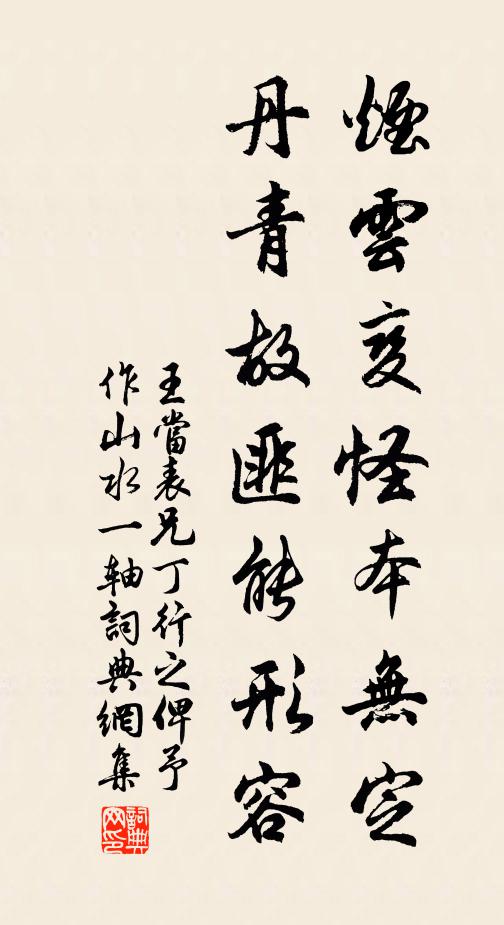 煙雲变怪本無定
丹青故匪能形容
王當表兄丁行之俾予
作山水一軸詞典網集
詞典网印